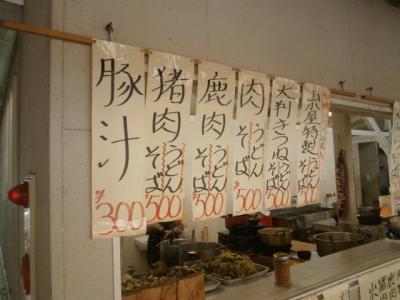 豚汁
¥300
猪肉うどん
そば
¥500
鹿肉うどん
そば
¥500
肉うどん
そば
¥500
大判きつねうどん
そば
¥500
山小屋特製うどん
そば
¥500